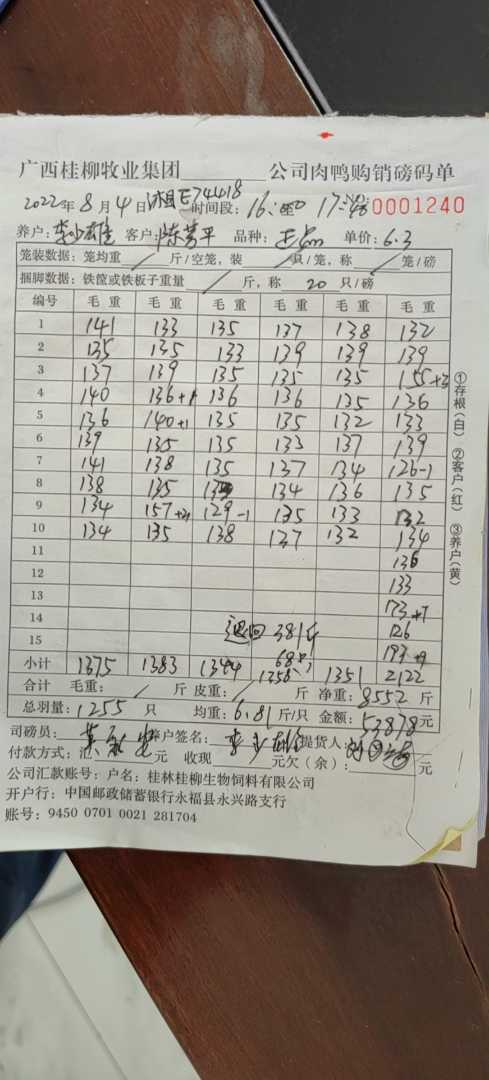 广西桂柳牧业集团______公司肉鸭购销磅码单
2022年8月4日 湘E74418 时间段: 16: 17: 0001240
养户: 客户: 陈 平 品种: 单价: 6.3
笼装数据: 笼均重 斤/空笼, 装 只/笼, 称 笼/磅
捆脚数据: 铁筐或铁板子重量 斤, 称 20 只/磅
编号 毛重 毛重 毛重 毛重 毛重 毛重
1 141 133 135 137 138 132
2 135 135 133 139 139 139
3 137 139 135 135 135 155+3
4 140 136+1 136 136 135 136
5 136 140+1 135 135 132 133
6 139 135 135 133 137 139
7 141 138 135 137 134 126-1
8 138 135 134 136 135
9 134 157+3 129-1 135 133 132
10 134 135 138 137 132 134
11 136
12 133
13 173+7
14 126
15 退回381斤 193+9
68只
小计 1375 1383 1344 1358 1351 2122
合计 毛重: 斤 皮重: 斤 净重: 8552 斤
总羽量: 1255 只 均重: 6.81 斤/只 金额: 53878元
司磅员: 养户签名: 提货人:
付款方式: 汇 元 收现 元欠(余): 元
公司汇款账号: 户名: 桂林桂柳生物饲料有限公司
开户行: 中国邮政储蓄银行永福县永兴路支行
账号: 9450 0701 0021 281704
①存根(白) ②客户(红) ③养户(黄)